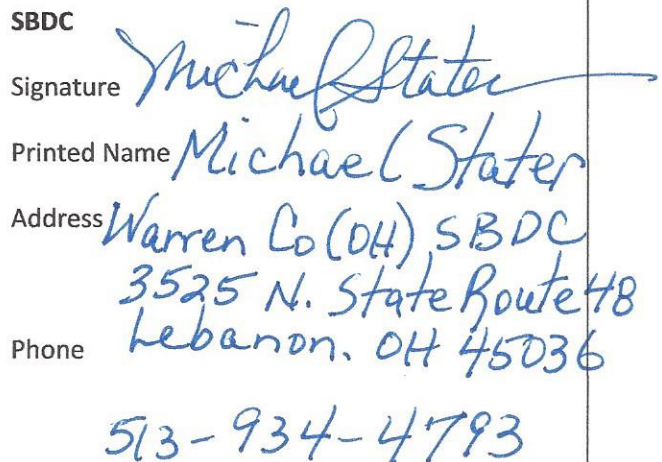 SBDC
Signature Michael Stater
Printed Name Michael Stater
Address Warren Co (OH) SBDC
3525 N. State Route 48
Phone Lebanon, OH 45036
513-934-4793